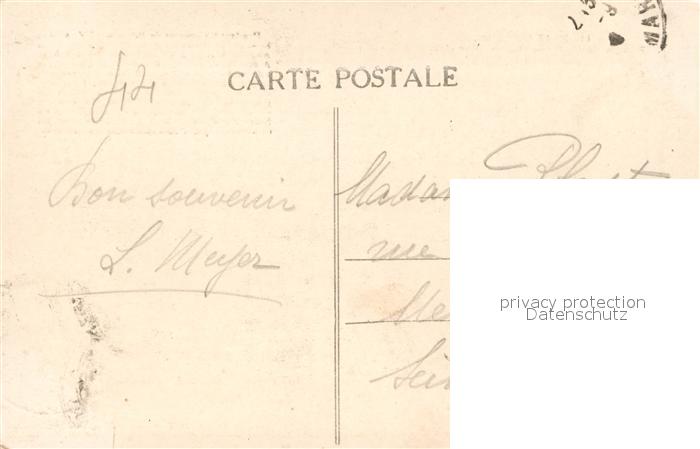 CARTE POSTALE
44
Bon souvenir
L. Meyer
Madam
rue
Me
Sei
privacy protection
Datenschutz